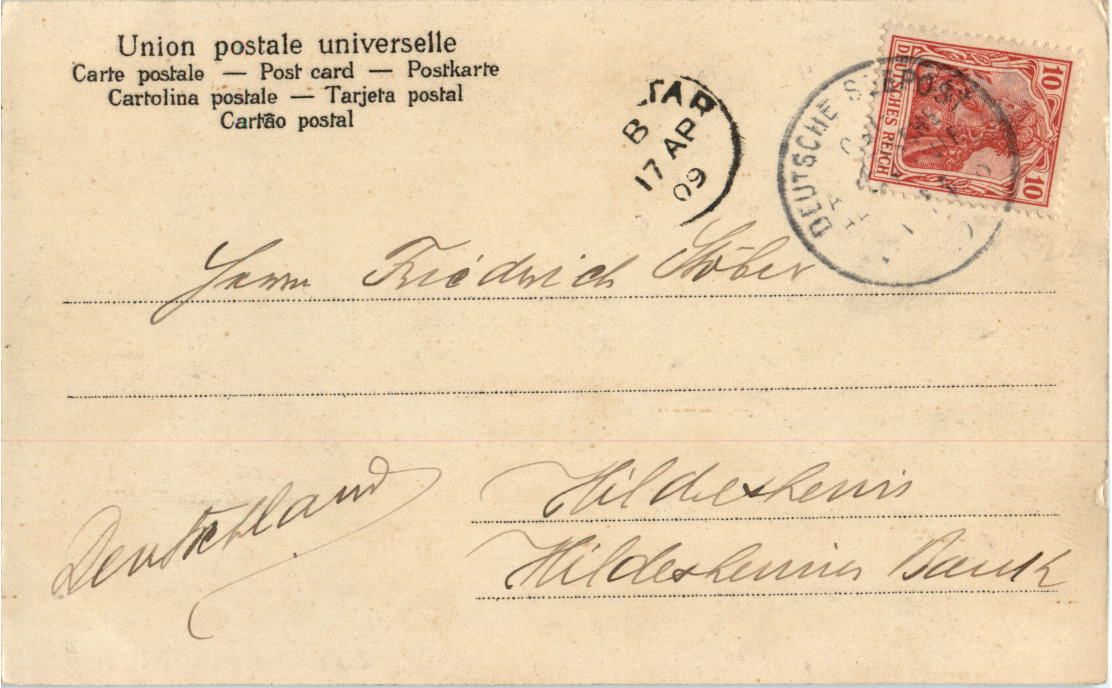 Union postale universelle
Carte postale — Post card — Postkarte
Cartolina postale — Tarjeta postal
Cartão postal
TAR
B
17 AP
09
DEUTSCHE SEEPOST
DEUTSCHES REICH
10
10
Herrn Friedrich Stöber
Hildesheim
Hildesheimer Bank
Deutschland